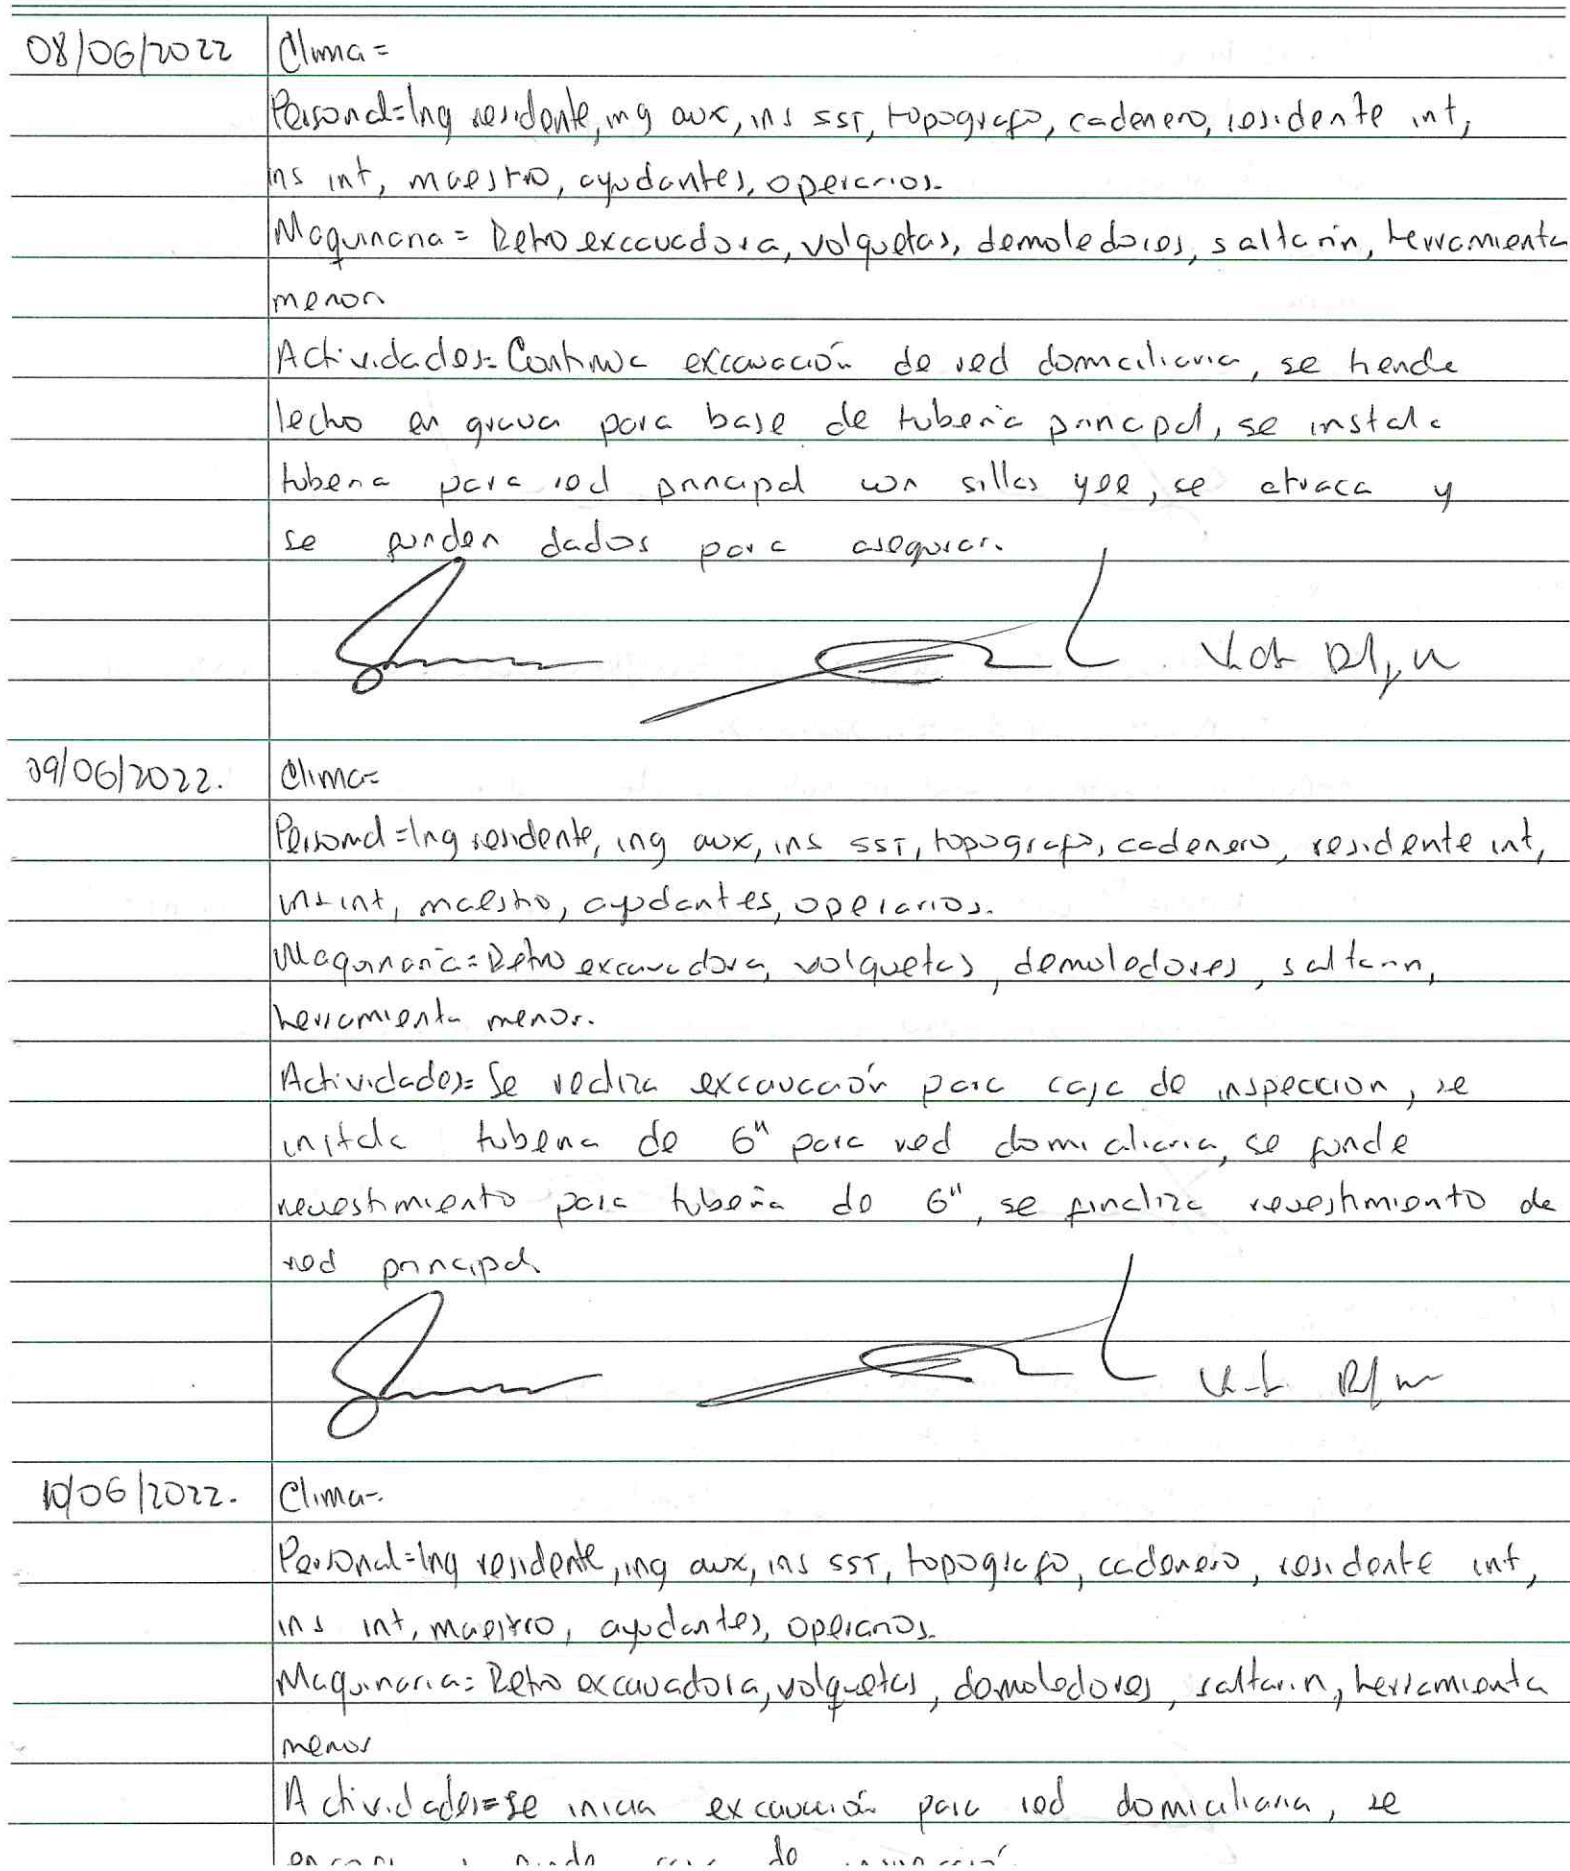 08/06/2022 Clima=
Personal=Ing residente, ing aux, ins SST, topografo, cadenero, residente int,
ins int, maestro, ayudantes, operarios.
Maquinaria= Retroexcavadora, volquetas, demoledores, saltarin, herramienta
menor
Actividades= Continua excavación de red domiciliaria, se tiende
lecho en grava para base de tubería principal, se instala
tuberia para red principal con sillas yee, se atraca y
se funden dados para asegurar.
09/06/2022. Clima=
Personal=Ing residente, ing aux, ins SST, topografo, cadenero, residente int,
ins int, maestro, ayudantes, operarios.
Maquinaria= Retroexcavadora, volquetas, demoledores, saltarin,
herramienta menor.
Actividades= Se realiza excavación para caja de inspeccion, se
instala tuberia de 6" para red domiciliaria, se funde
revestimiento para tubería de 6", se finaliza revestimiento de
red principal
10/06/2022. Clima=
Personal=Ing residente, ing aux, ins SST, topografo, cadenero, residente int,
ins int, maestro, ayudantes, operarios.
Maquinaria= Retroexcavadora, volquetas, demoledores, saltarin, herramienta
menor
Actividades=se inicia excavación para red domiciliaria, se
de